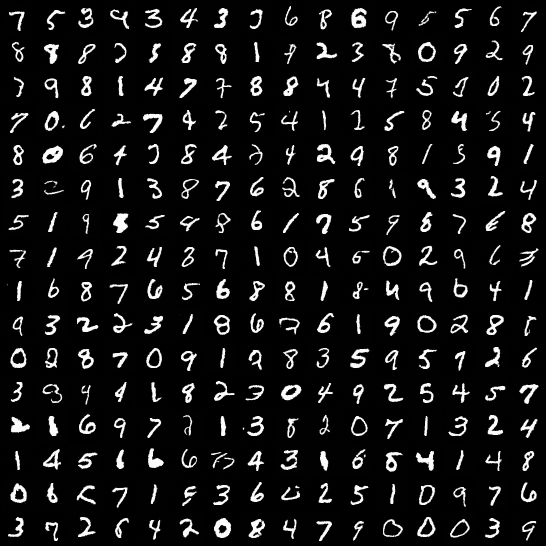 7 5 3 9 3 4 3 3 6 8 6 9 5 5 6 7
8 8 8 3 3 8 8 1 9 2 3 8 0 9 2 9
3 9 8 1 4 7 7 8 8 4 4 7 5 7 0 2
7 0 6 2 7 4 2 5 4 1 2 5 8 4 5 4
8 0 6 4 3 8 4 2 4 2 9 8 1 5 9 1
3 2 9 1 3 8 7 6 2 8 6 1 9 3 2 4
5 1 9 8 5 9 8 6 1 7 5 9 8 7 6 8
7 1 9 2 4 3 7 1 0 4 5 0 2 9 6 3
1 6 8 7 6 5 6 8 8 1 8 4 9 6 4 1
9 3 2 2 3 1 8 6 2 6 1 9 0 2 8 1
0 2 8 7 0 9 1 9 8 3 5 9 5 7 2 6
3 9 4 4 1 8 2 3 0 4 9 2 5 4 5 7
2 1 6 9 7 2 1 3 8 2 0 7 1 3 2 4
1 4 5 1 6 6 4 3 1 6 8 4 1 4 8
0 6 7 1 5 3 6 2 5 1 0 9 7 6
3 7 2 6 4 2 0 8 4 7 9 0 0 0 3 9